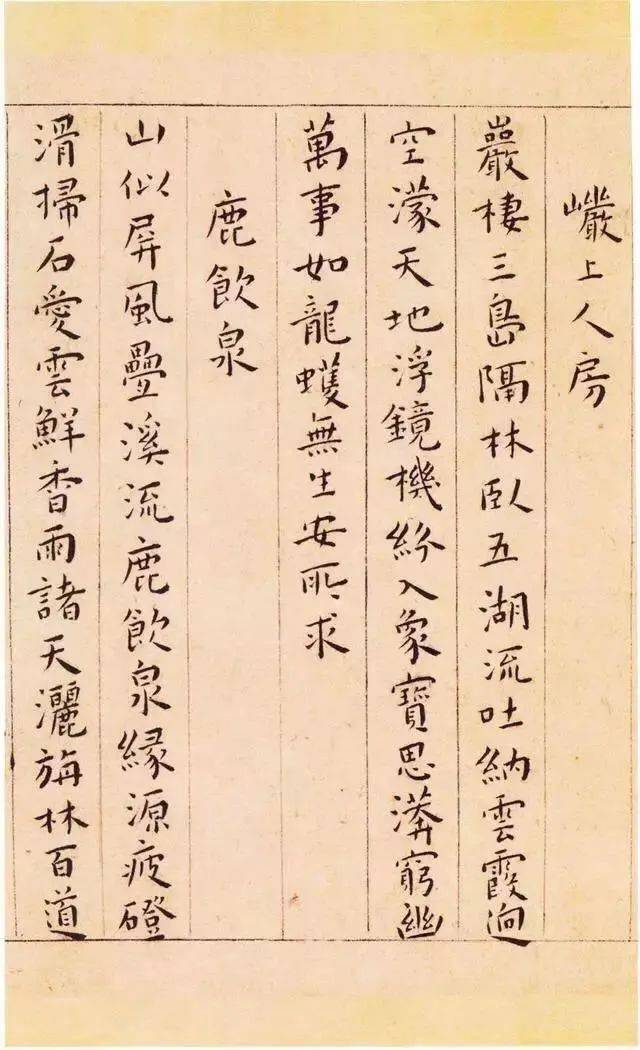 巗上人房
巖棲三島隔林臥五湖流吐納雲霞迥
空濛天地浮鏡機紛入象寶思漭窮幽
萬事如龍蠖無生安所求
鹿飲泉
山似屏風疊溪流鹿飲泉緣源疲磴
滑掃石愛雲鮮香雨諸天灑旃林百道